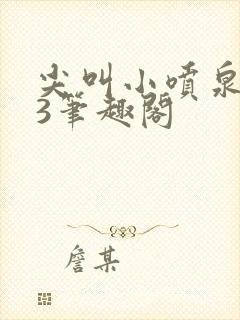 尖叫小喷泉
3笔趣阁
詹某